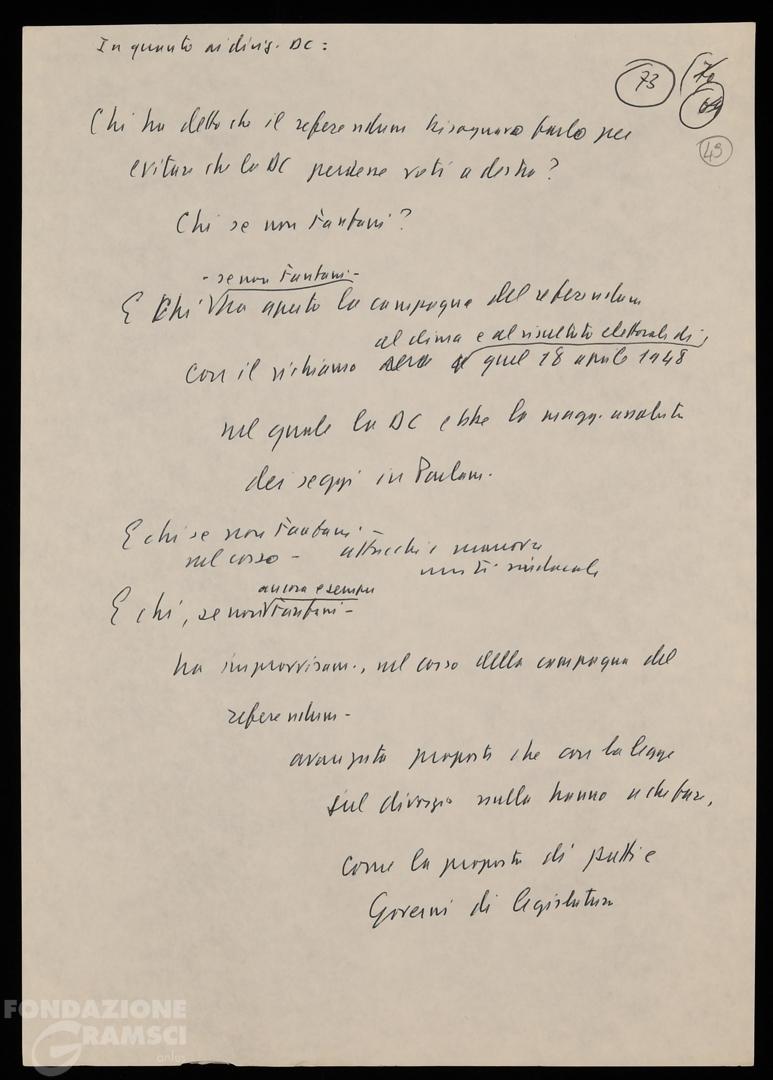 In quanto ai dirig. DC:
73
70
69
49
Chi ha detto che il referendum bisognava farlo per
evitare che la DC perdesse voti a destra?
Chi se non Fanfani?
- se non Fanfani -
E chi ha aperto la campagna del referendum
al clima e al risultato elettorale di
con il richiamo quel 18 aprile 1948
nel quale la DC ebbe la magg. assoluta
dei seggi in Parlam.
E chi se non Fanfani -
nel corso - attacchi e manovra
unità sindacale
ancora e sempre
E chi, se non Fanfani -
ha improvvisam., nel corso della campagna del
referendum -
avanzato proposte che con la legge
sul divorzio nulla hanno a che fare,
come la proposta di patti e
Governi di legislatura
FONDAZIONE
GRAMSCI
onlus